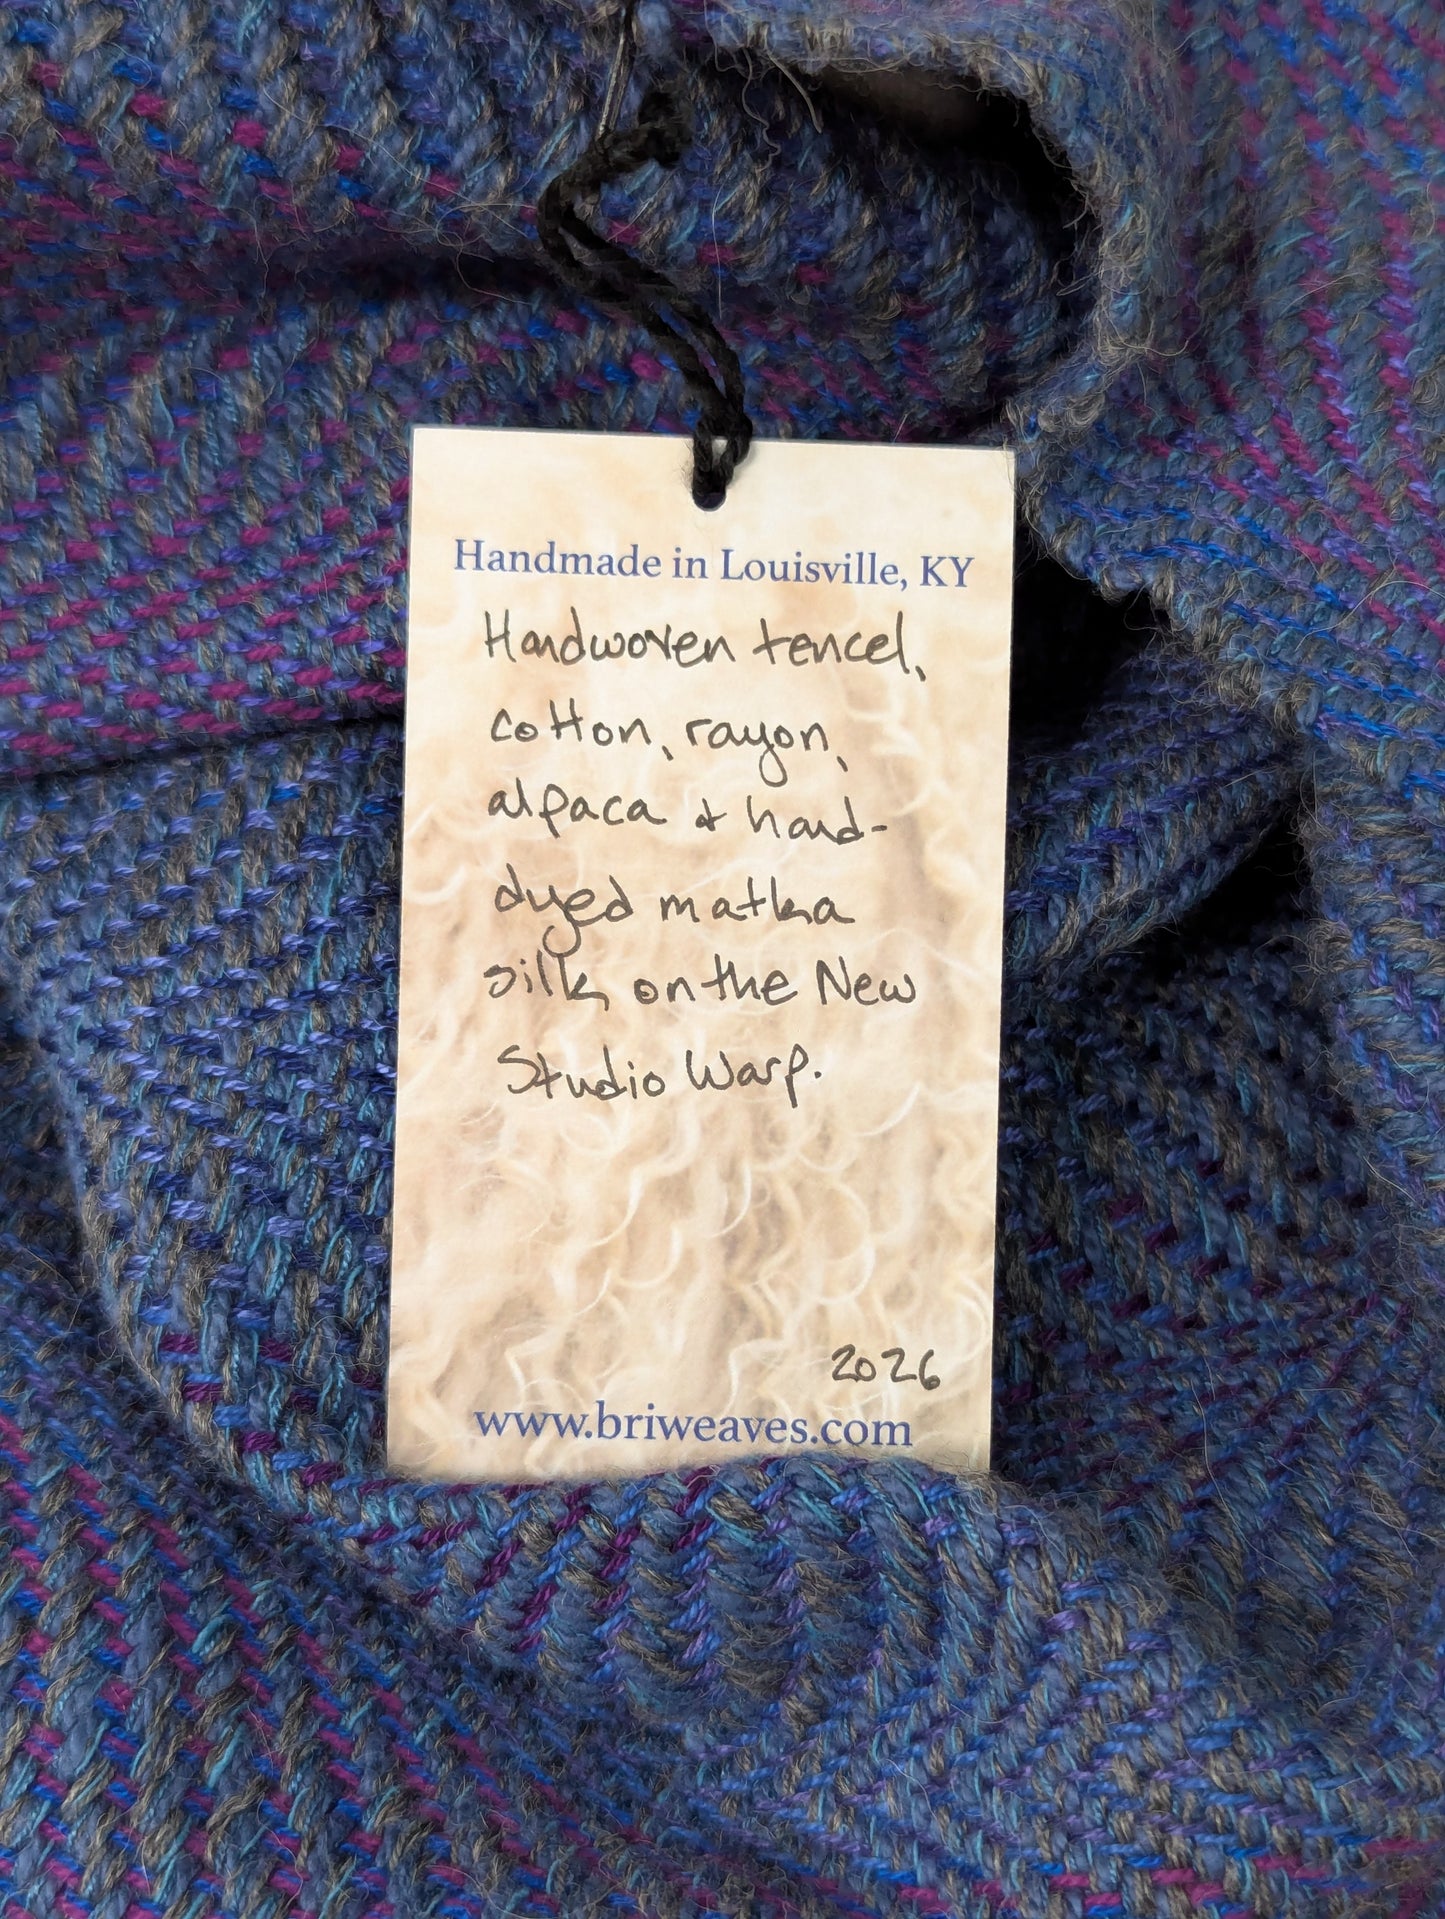 Handmade in Louisville, KY
Handwoven tencel,
cotton, rayon,
alpaca & hand-
dyed matka
silk on the New
Studio Warp.
2026
www.briweaves.com